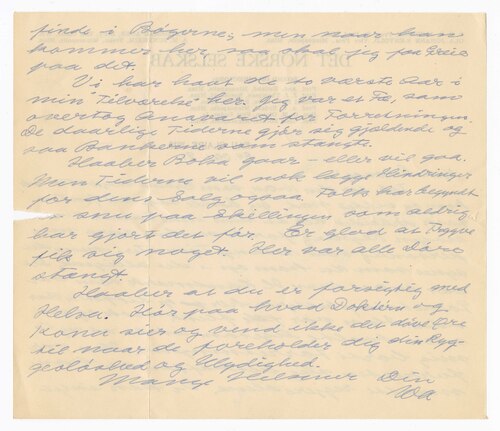 finde i Bøgerne; men naar han
kommer her saa skal jeg faa Greie
paa det.
Vi har havt de to værste Aar i
min Tilværelse her. Jeg var et Fæ, som
overtog Ansvaret for Forretningen.
De daarlige Tiderne gjør sig gjældende og
saa Bankerne som stængte.
Haaber Boka gaar – eller vil gaa.
Men Tiderne vil nok lægge Hindringer
for dens Salg ogsaa. Folk har begyndt
snu paa Skillingen som aldrig
har gjort det før. Er glad at Trygve
fik sig noget. Her var alle Døre
stængt.
Haaber at du er forsigtig med
Helsa. Hør paa hvad Doktern og
Kona sier og vend ikke det døve Øre
til naar de foreholder dig din Ryg-
gesløshed og Ulydighed.
Mange Hilsner Din
DET NORSKE SELSKAB